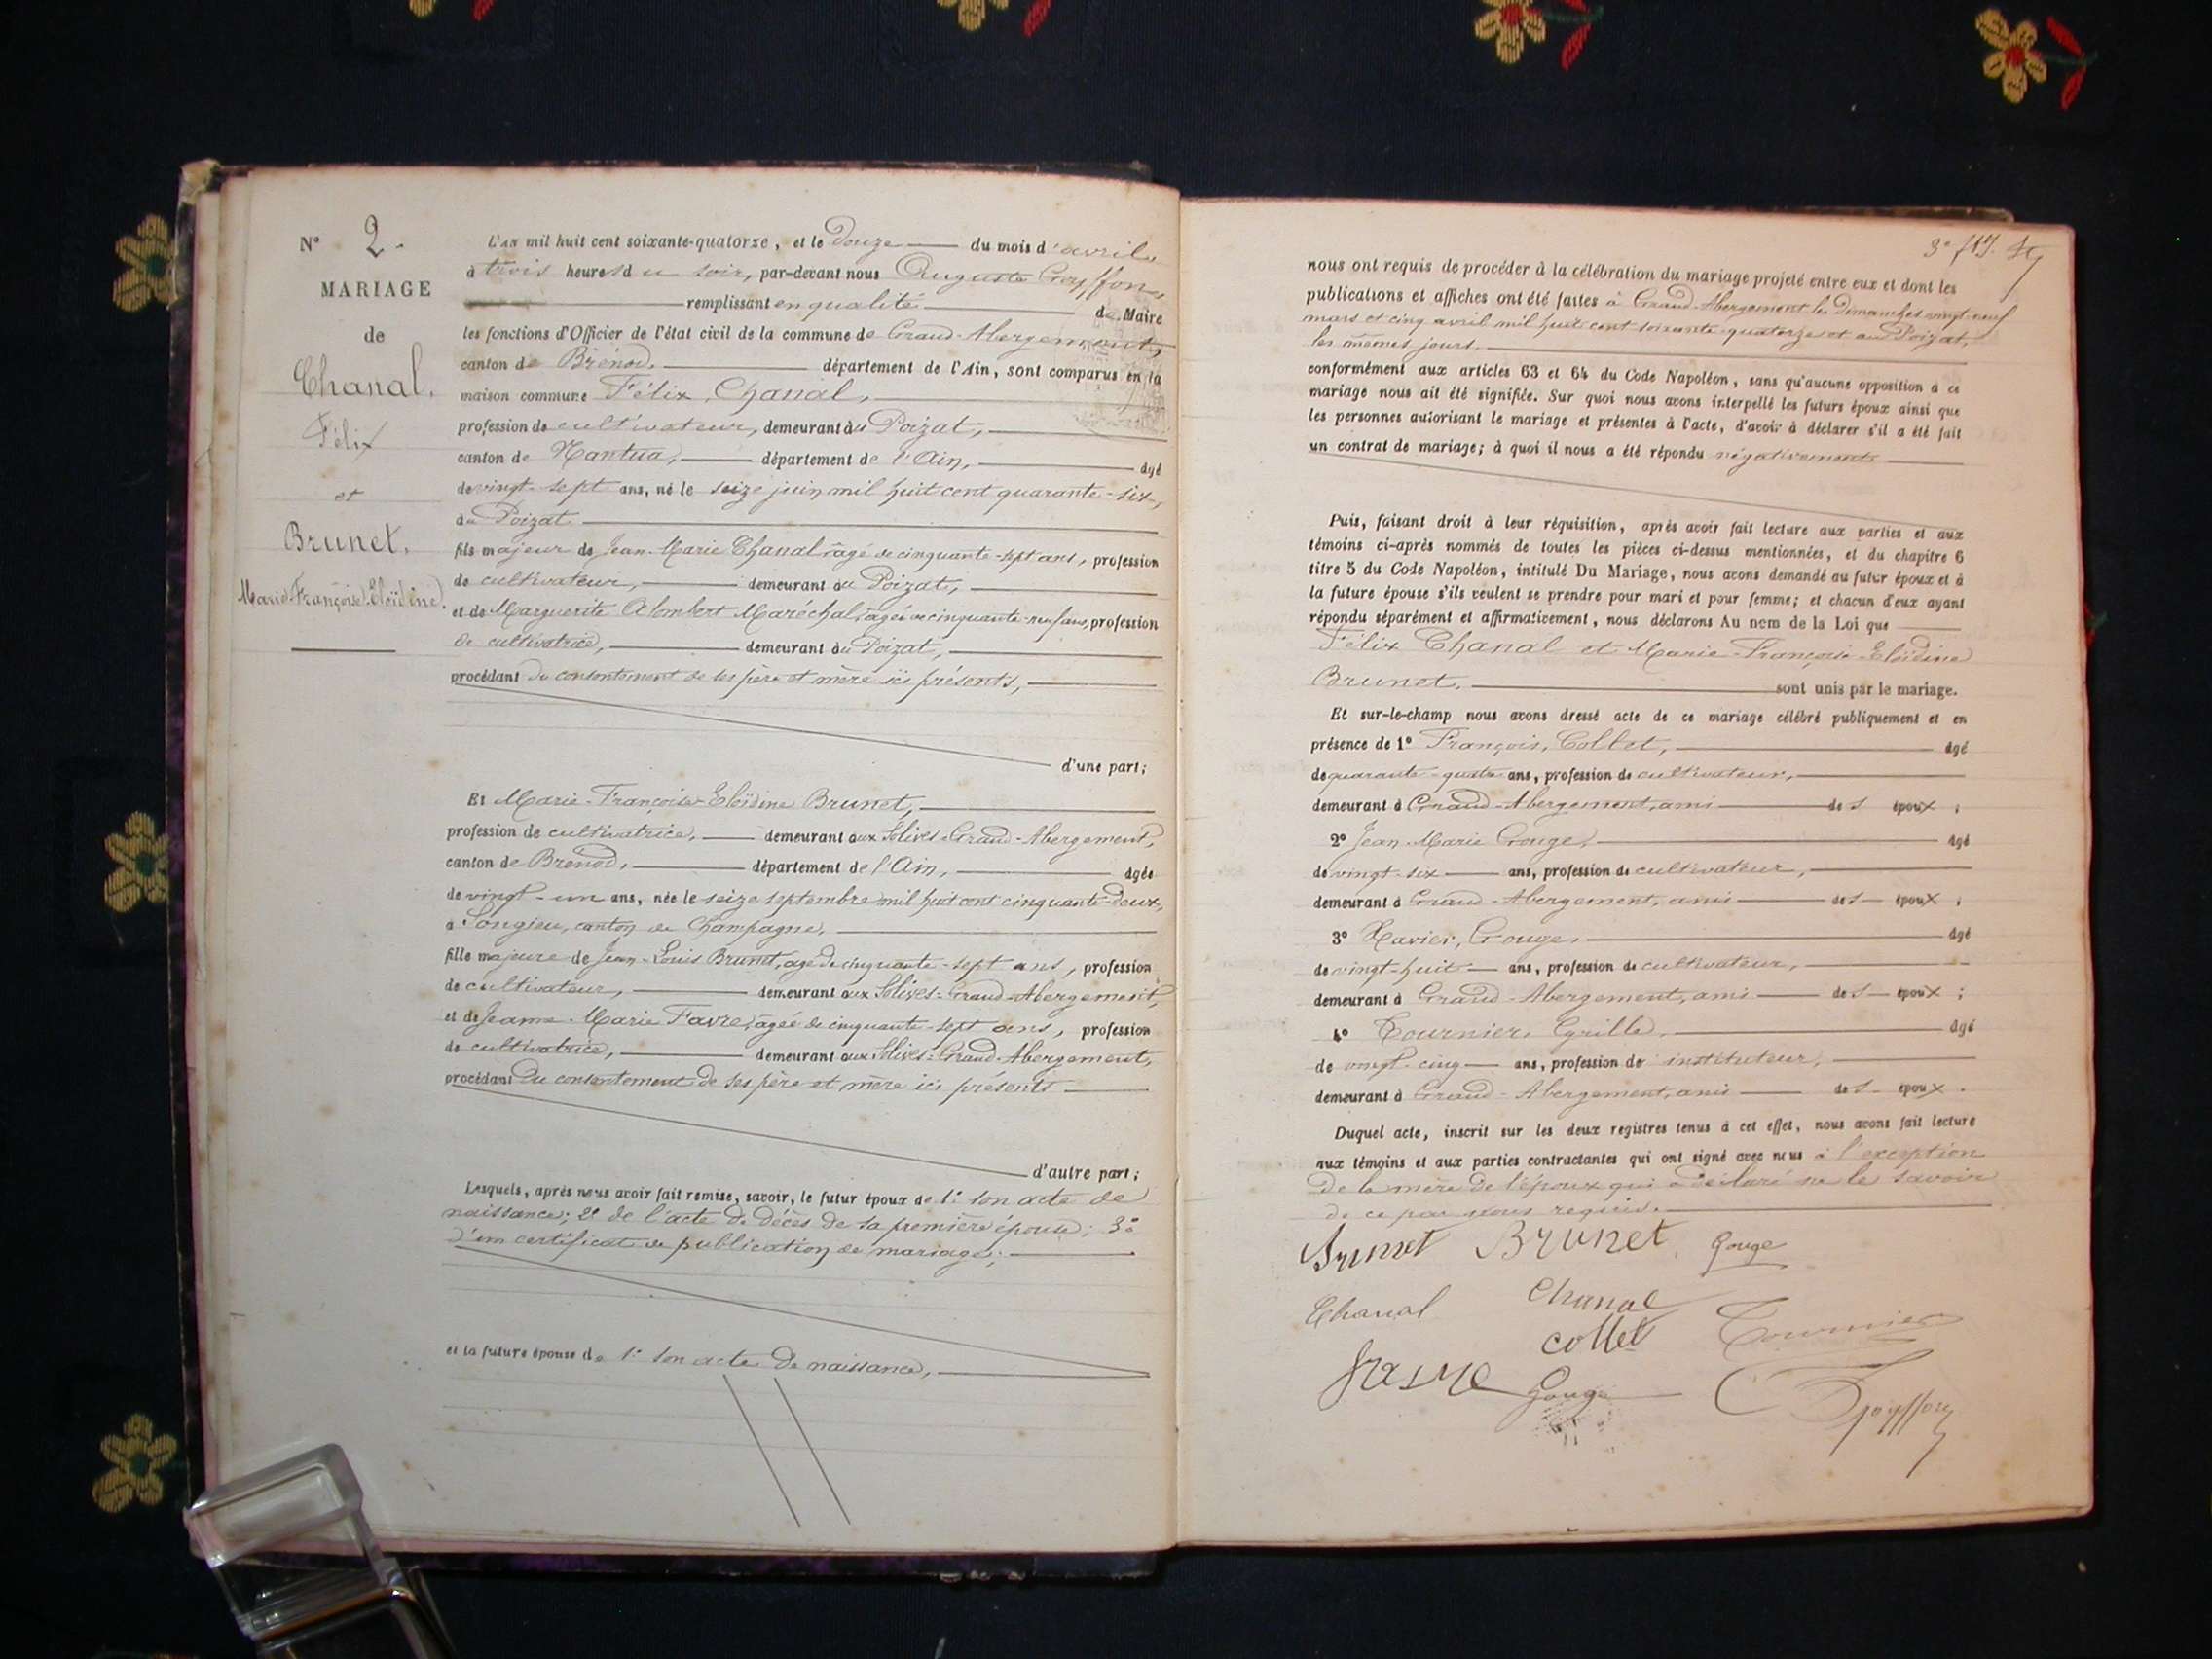 N° 2.
MARIAGE
de
Chanal,
Félix
et
Brunet,
Marie-Françoise-Eloïdine.
L'an mil huit cent soixante-quatorze, et le Douze du mois d'avril
à trois heures du soir, par-devant nous Auguste
remplissant en qualité de Maire
les fonctions d'Officier de l'état civil de la commune de Grand-Abergement,
canton de Brénod, département de l'Ain, sont comparus en la
maison commune Félix, Chanal,
profession de cultivateur, demeurant au Poizat,
canton de Nantua, département de l'Ain, âgé
de vingt-sept ans, né le seize juin mil huit cent quarante-six,
au Poizat
fils majeur de Jean-Marie Chanal, âgé de cinquante-sept ans, profession
de cultivateur, demeurant au Poizat,
et de Marguerite Alombert Maréchal, âgée de cinquante-neuf ans, profession
de cultivatrice, demeurant au Poizat,
procédant du consentement de ses père et mère ici présents,
d'une part;
Et Marie-Françoise-Eloïdine Brunet,
profession de cultivatrice, demeurant aux Solives-Grand-Abergement,
canton de Brénod, département de l'Ain, âgée
de vingt-un ans, née le seize septembre mil huit cent cinquante-deux,
à Songieu, canton de Champagne,
fille majeure de Jean-Louis Brunet, âgé de cinquante-sept ans, profession
de cultivateur, demeurant aux Solives-Grand-Abergement,
et de Jeanne-Marie Favre, âgée de cinquante-sept ans, profession
de cultivatrice, demeurant aux Solives-Grand-Abergement,
procédant du consentement de ses père et mère ici présents
d'autre part;
Lesquels, après nous avoir fait remise, savoir, le futur époux de 1° son acte de
naissance; 2° de l'acte de décès de sa première épouse; 3°
d'un certificat de publication de mariage;
et la future épouse de 1° son acte de naissance,
3e
nous ont requis de procéder à la célébration du mariage projeté entre eux et dont les
publications et affiches ont été faites à Grand-Abergement les dimanches vingt-neuf
mars et cinq avril mil huit cent soixante-quatorze et au Poizat,
les mêmes jours,
conformément aux articles 63 et 64 du Code Napoléon, sans qu'aucune opposition à ce
mariage nous ait été signifiée. Sur quoi nous avons interpellé les futurs époux ainsi que
les personnes autorisant le mariage et présentes à l'acte, d'avoir à déclarer s'il a été fait
un contrat de mariage; à quoi il nous a été répondu négativement
Puis, faisant droit à leur réquisition, après avoir fait lecture aux parties et aux
témoins ci-après nommés de toutes les pièces ci-dessus mentionnées, et du chapitre 6
titre 5 du Code Napoléon, intitulé Du Mariage, nous avons demandé au futur époux et à
la future épouse s'ils veulent se prendre pour mari et pour femme; et chacun d'eux ayant
répondu séparément et affirmativement, nous déclarons Au nom de la Loi que
Félix Chanal et Marie-Françoise-Eloïdine
Brunet, sont unis par le mariage.
Et sur-le-champ nous avons dressé acte de ce mariage célébré publiquement et en
présence de 1° François, Collet, âgé
de quarante-quatre ans, profession de cultivateur,
demeurant à Grand-Abergement, ami des époux;
2° Jean-Marie Gouge, âgé
de vingt-six ans, profession de cultivateur,
demeurant à Grand-Abergement, ami des époux;
3° Xavier, Gouge, âgé
de vingt-huit ans, profession de cultivateur,
demeurant à Grand-Abergement, ami des époux;
4° Tournier, Cyrille, âgé
de vingt-cinq ans, profession de instituteur,
demeurant à Grand-Abergement, ami des époux.
Duquel acte, inscrit sur les deux registres tenus à cet effet, nous avons fait lecture
aux témoins et aux parties contractantes qui ont signé avec nous à l'exception
de la mère de l'époux qui a déclaré ne le savoir
de ce par nous requise.
Brunet Brunet Gouge
Chanal Chanal
Collet Tournier
Gouge